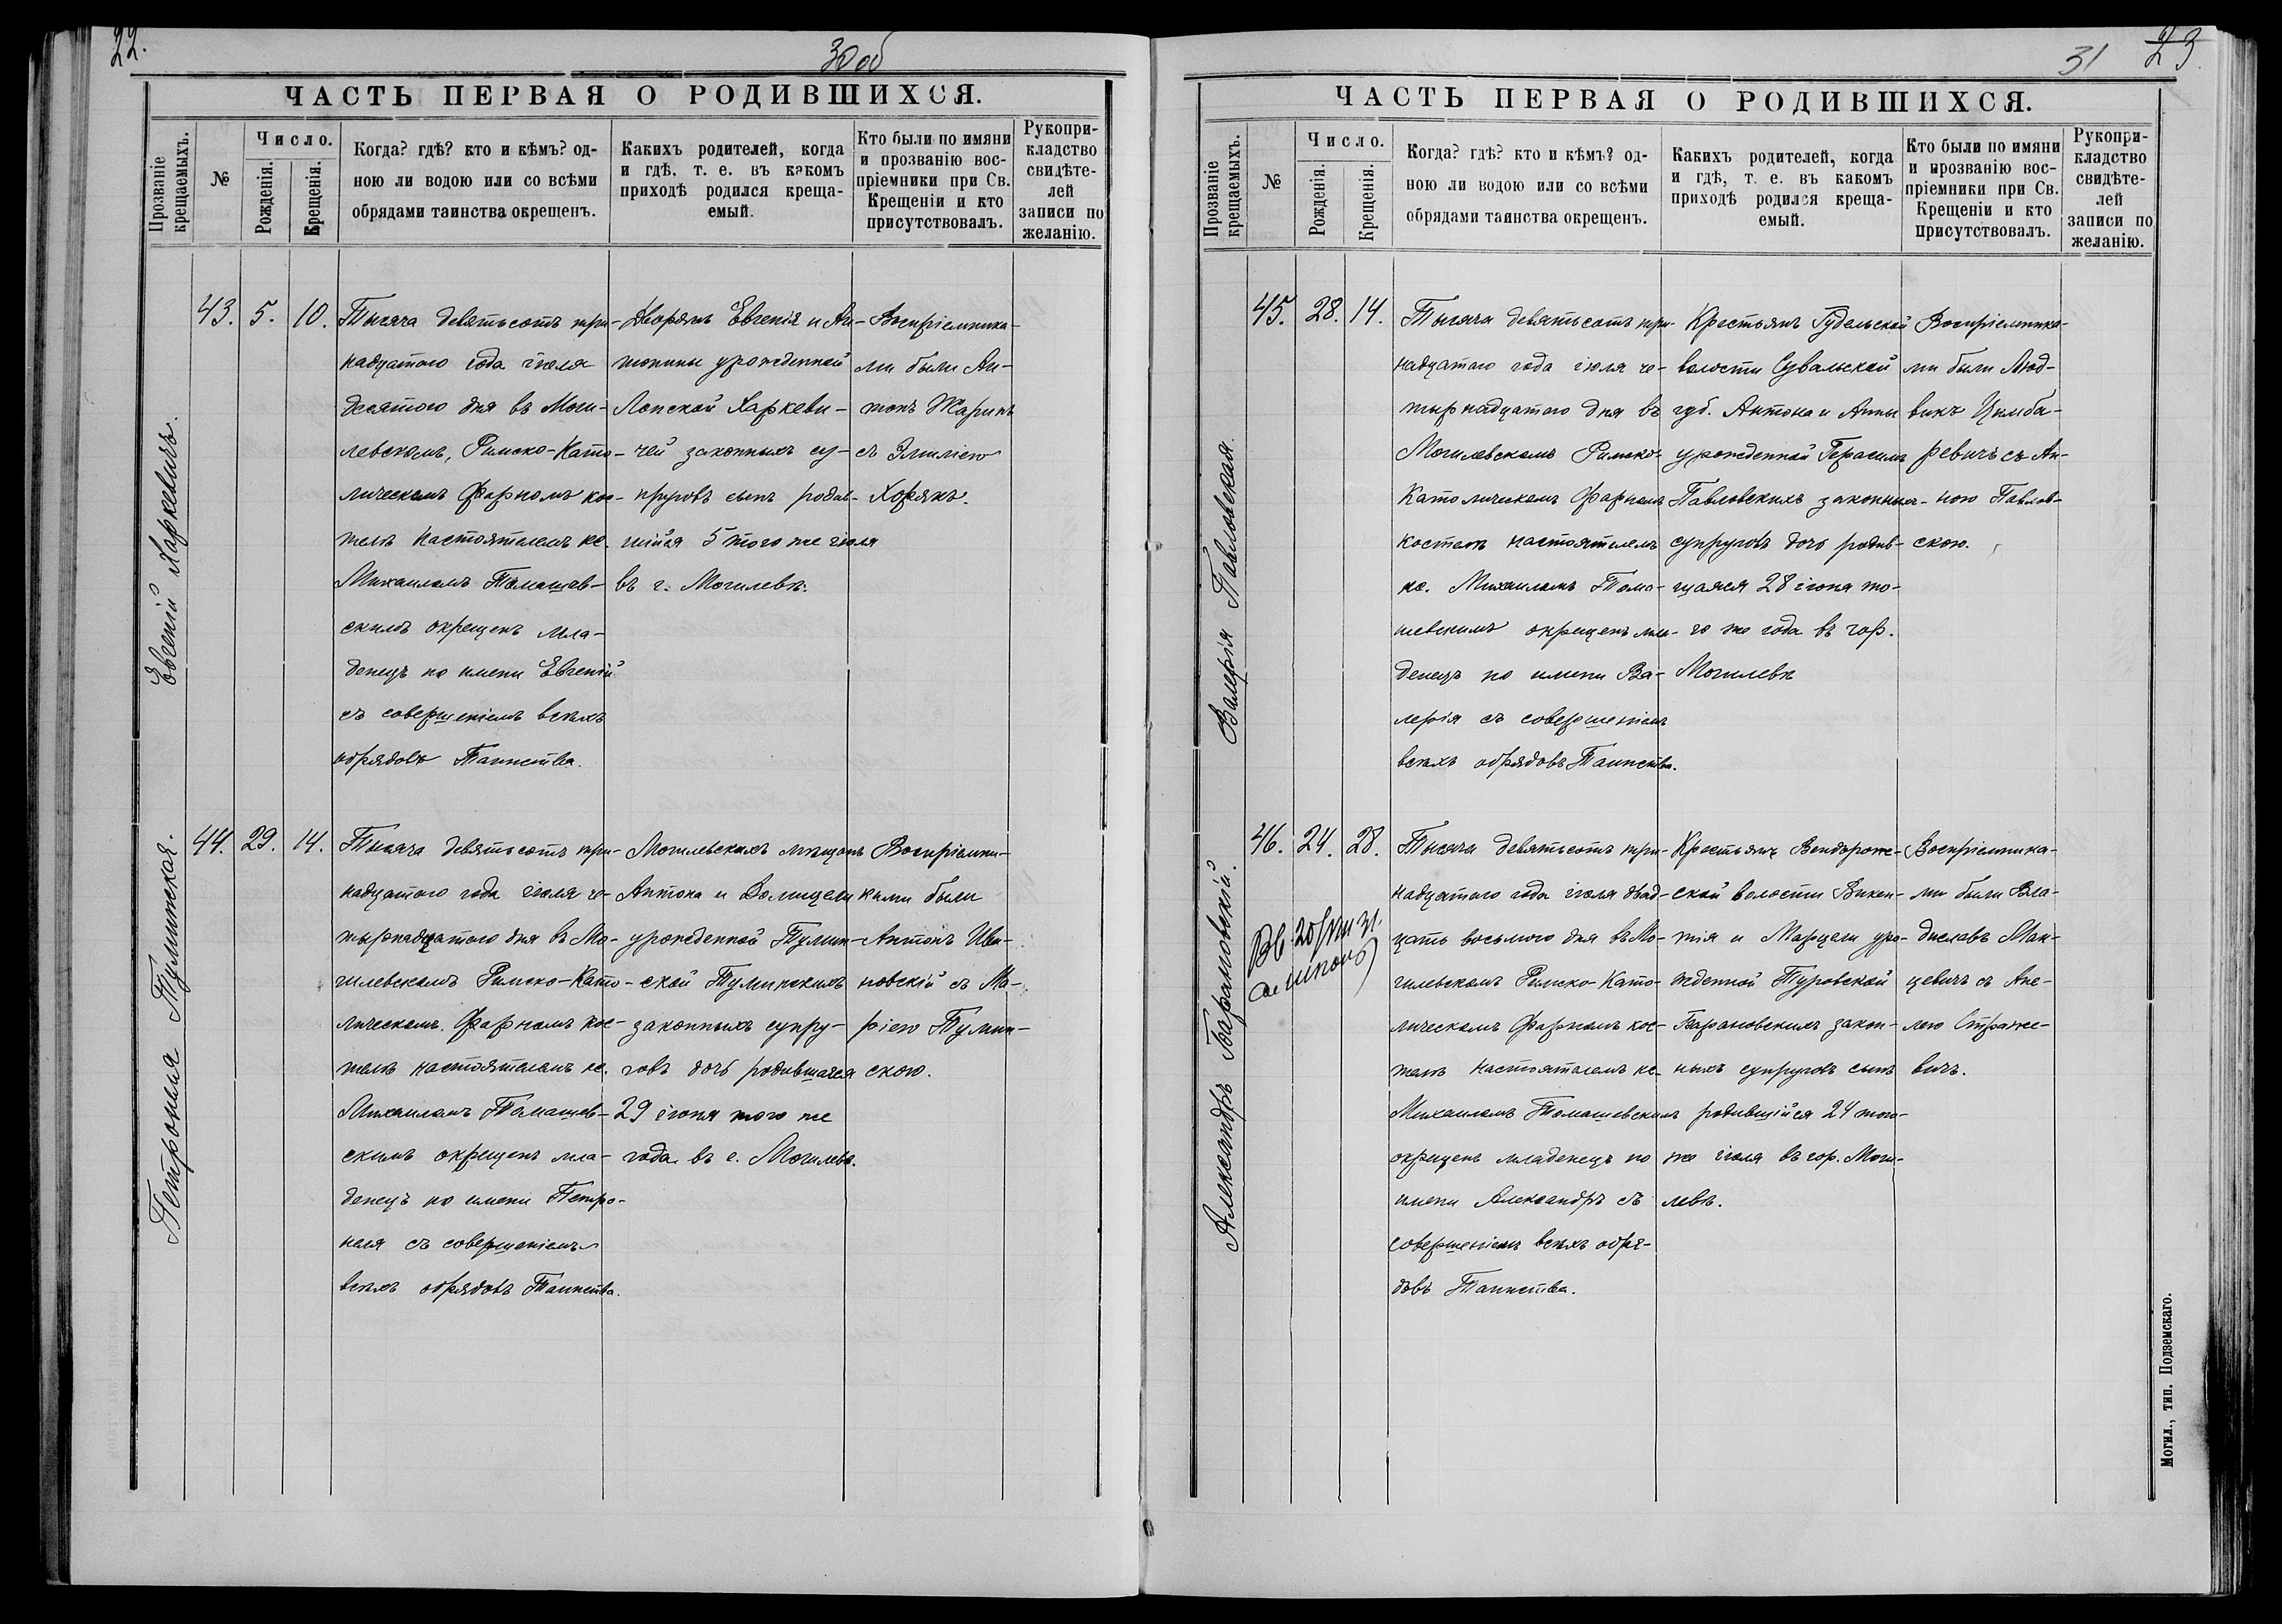 22.
30 об
ЧАСТЬ ПЕРВАЯ О РОДИВШИХСЯ.
Прозваніе крещаемыхъ.
№
Число.
Рожденія.
Крещенія.
Когда? гдѣ? кто и кѣмъ? од-
ною ли водою или со всѣми
обрядами таинства окрещенъ.
Какихъ родителей, когда
и гдѣ, т. е. въ какомъ
приходѣ родился креща-
емый.
Кто были по имяни
и прозванію вос-
пріемники при Св.
Крещеніи и кто
присутствовалъ.
Рукопри-
кладство
свидѣте-
лей
записи по
желанію.
Евгеній Харкевичъ.
43. 5. 10.
Тысяча девятьсотъ три-
надцатого года іюля
десятого дня въ Моги-
левскомъ, Римско-Като-
лическомъ Фарномъ кос-
телѣ настоятелемъ кс.
Михаиломъ Томашев-
скимъ окрещенъ мла-
денецъ по имени Евгеній
съ совершеніемъ всѣхъ
обрядовъ Таинства.
Дворянъ Евгенія и Ан-
тонины урожденной
Лопской Харкеви-
чей законныхъ су-
пруговъ сынъ родив-
шійся 5 того же іюля
въ г. Могилевѣ.
Воспріемника-
ми были Ан-
тонъ Жаринъ
съ Эмиліею
Хорякъ.
Петронеля Туминская.
44. 29. 14.
Тысяча девятьсотъ три-
надцатого года іюля че-
тырнадцатого дня въ Мо-
гилевскомъ Римско-Като-
лическомъ Фарномъ кос-
телѣ настоятелемъ кс.
Михаиломъ Томашев-
скимъ окрещенъ мла-
денецъ по имени Петро-
неля съ совершеніемъ
всѣхъ обрядовъ Таинства.
Могилевскихъ мѣщанъ
Антона и Домицели
урожденной Тумин-
ской Туминскихъ
законныхъ супру-
говъ дочь родившаяся
29 іюня того же
года въ г. Могилевѣ.
Воспріемни-
ками были
Антонъ Ива-
новскій съ Ма-
ріею Тумин-
скою.
31 23.
ЧАСТЬ ПЕРВАЯ О РОДИВШИХСЯ.
Прозваніе крещаемыхъ.
№
Число.
Рожденія.
Крещенія.
Когда? гдѣ? кто и кѣмъ? од-
ною ли водою или со всѣми
обрядами таинства окрещенъ.
Какихъ родителей, когда
и гдѣ, т. е. въ какомъ
приходѣ родился креща-
емый.
Кто были по имяни
и прозванію вос-
пріемники при Св.
Крещеніи и кто
присутствовалъ.
Рукопри-
кладство
свидѣте-
лей
записи по
желанію.
Валерія Павловская.
45. 28. 14.
Тысяча девятьсотъ три-
надцатого года іюля че-
тырнадцатого дня въ
Могилевскомъ Римско-
Католическомъ Фарномъ
костелѣ настоятелемъ
кс. Михаиломъ Тома-
шевскимъ окрещенъ мла-
денецъ по имени Ва-
лерія съ совершеніемъ
всѣхъ обрядовъ Таинства.
Крестьянъ Гудельской
волости Сувальской
губ. Антона и Анны
урожденной Герасимъ
Павловскихъ законныхъ
супруговъ дочь родив-
шаяся 28 іюня то-
го же года въ гор.
Могилевѣ
Воспріемника-
ми были Люд-
викъ Цимба-
ревичъ съ Ан-
ною Павлов-
скою.
Александръ Барановскій.
46. 24. 28.
Тысяча девятьсотъ три-
надцатого года іюля двад-
цать восьмого дня въ Мо-
гилевскомъ Римско-Като-
лическомъ Фарномъ кос-
телѣ настоятелемъ кс.
Михаиломъ Томашевскимъ
окрещенъ младенецъ по
имени Александръ съ
совершеніемъ всѣхъ обря-
довъ Таинства.
Крестьянъ Вендорож-
ской волости Викен-
тія и Марцели уро-
жденной Туровской
Барановскихъ закон-
ныхъ супруговъ сынъ
родившійся 24 того
же іюля въ гор. Моги-
левѣ.
Воспріемника-
ми были Вла-
диславъ Мац-
цевичъ съ Ане-
лею Страже-
вичъ.
Могил., тип. Подземскаго.